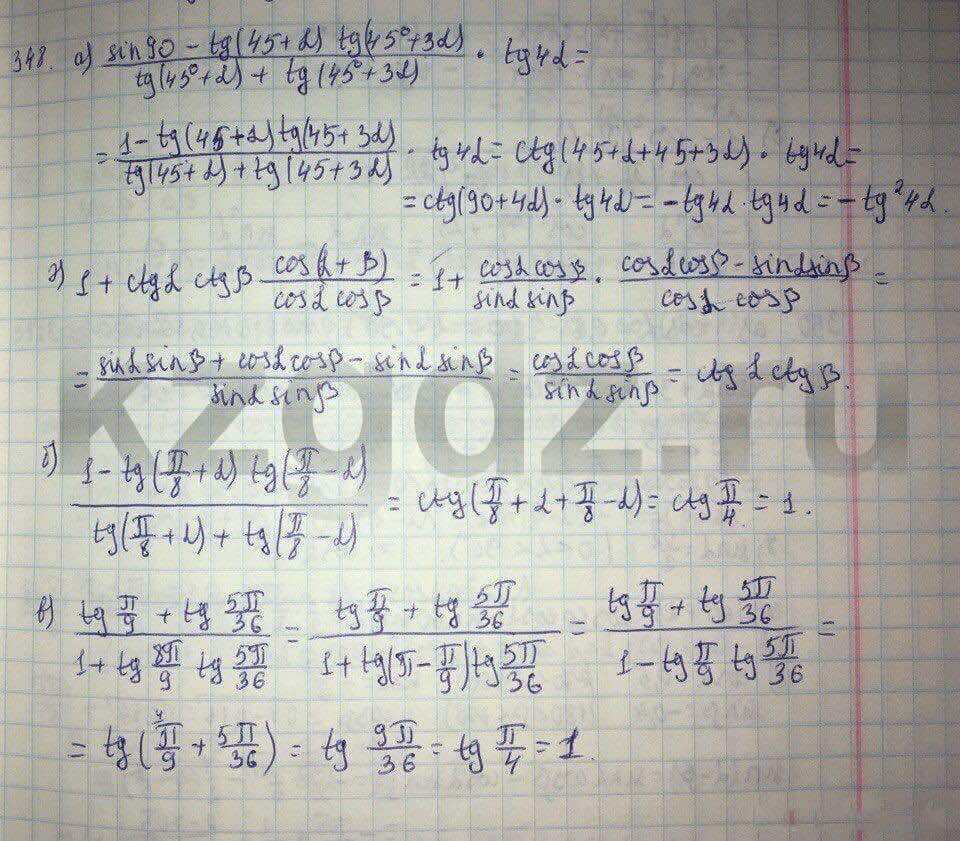 348. а) (sin90 - tg(45+α) tg(45°+3α))/(tg(45°+α) + tg(45°+3α)) · tg4α =
= (1 - tg(45+α)tg(45+3α))/(tg(45+α)+tg(45+3α)) · tg4α = ctg(45+α+45+3α) · tg4α =
= ctg(90+4α) · tg4α = -tg4α · tg4α = -tg²4α.
г) 1 + ctgα ctgβ cos(α+β)/(cosα cosβ) = 1 + (cosα cosβ)/(sinα sinβ) · (cosα cosβ - sinα sinβ)/(cosα · cosβ) =
= (sinα sinβ + cosα cosβ - sinα sinβ)/(sinα sinβ) = (cosα cosβ)/(sinα sinβ) = ctgα ctgβ.
kzgdz.ru
б) (1 - tg(π/8 + α) tg(π/8 - α))/(tg(π/8 + α) + tg(π/8 - α)) = ctg(π/8 + α + π/8 - α) = ctg π/4 = 1.
в) (tg π/9 + tg 5π/36)/(1 + tg 8π/9 tg 5π/36) = (tg π/9 + tg 5π/36)/(1 + tg(π - π/9) tg 5π/36) = (tg π/9 + tg 5π/36)/(1 - tg π/9 tg 5π/36) =
= tg(⁴π/9 + 5π/36) = tg 9π/36 = tg π/4 = 1.